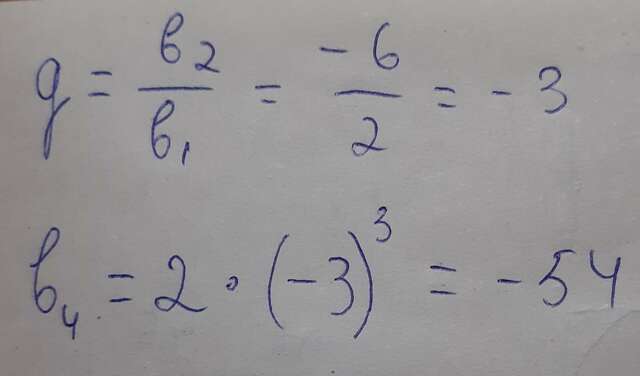 q = b₂/b₁ = -6/2 = -3
b₄ = 2 · (-3)³ = -54